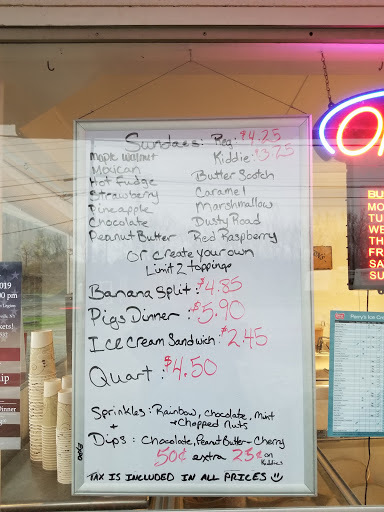 Sundaes: Reg: $4.25
Kiddie: $3.25
Maple Walnut
Mexican Butter Scotch
Hot Fudge Caramel
Strawberry Marshmallow
Pineapple Dusty Road
Chocolate Red Raspberry
Peanut Butter
Or create your own
Limit 2 toppings
Banana Split: $4.85
Pigs Dinner: $5.90
Ice Cream Sandwich: $2.45
Quart: $4.50
Sprinkles: Rainbow, Chocolate, Mint
+ + Chopped Nuts
Dips: Chocolate, Peanut Butter - Cherry
50¢ extra 25¢ on Kiddies
TAX IS INCLUDED IN ALL PRICES
2019
00 pm
BU
MO
TU
WE
TH
FR
SA
SU
Perry's Ice Cr